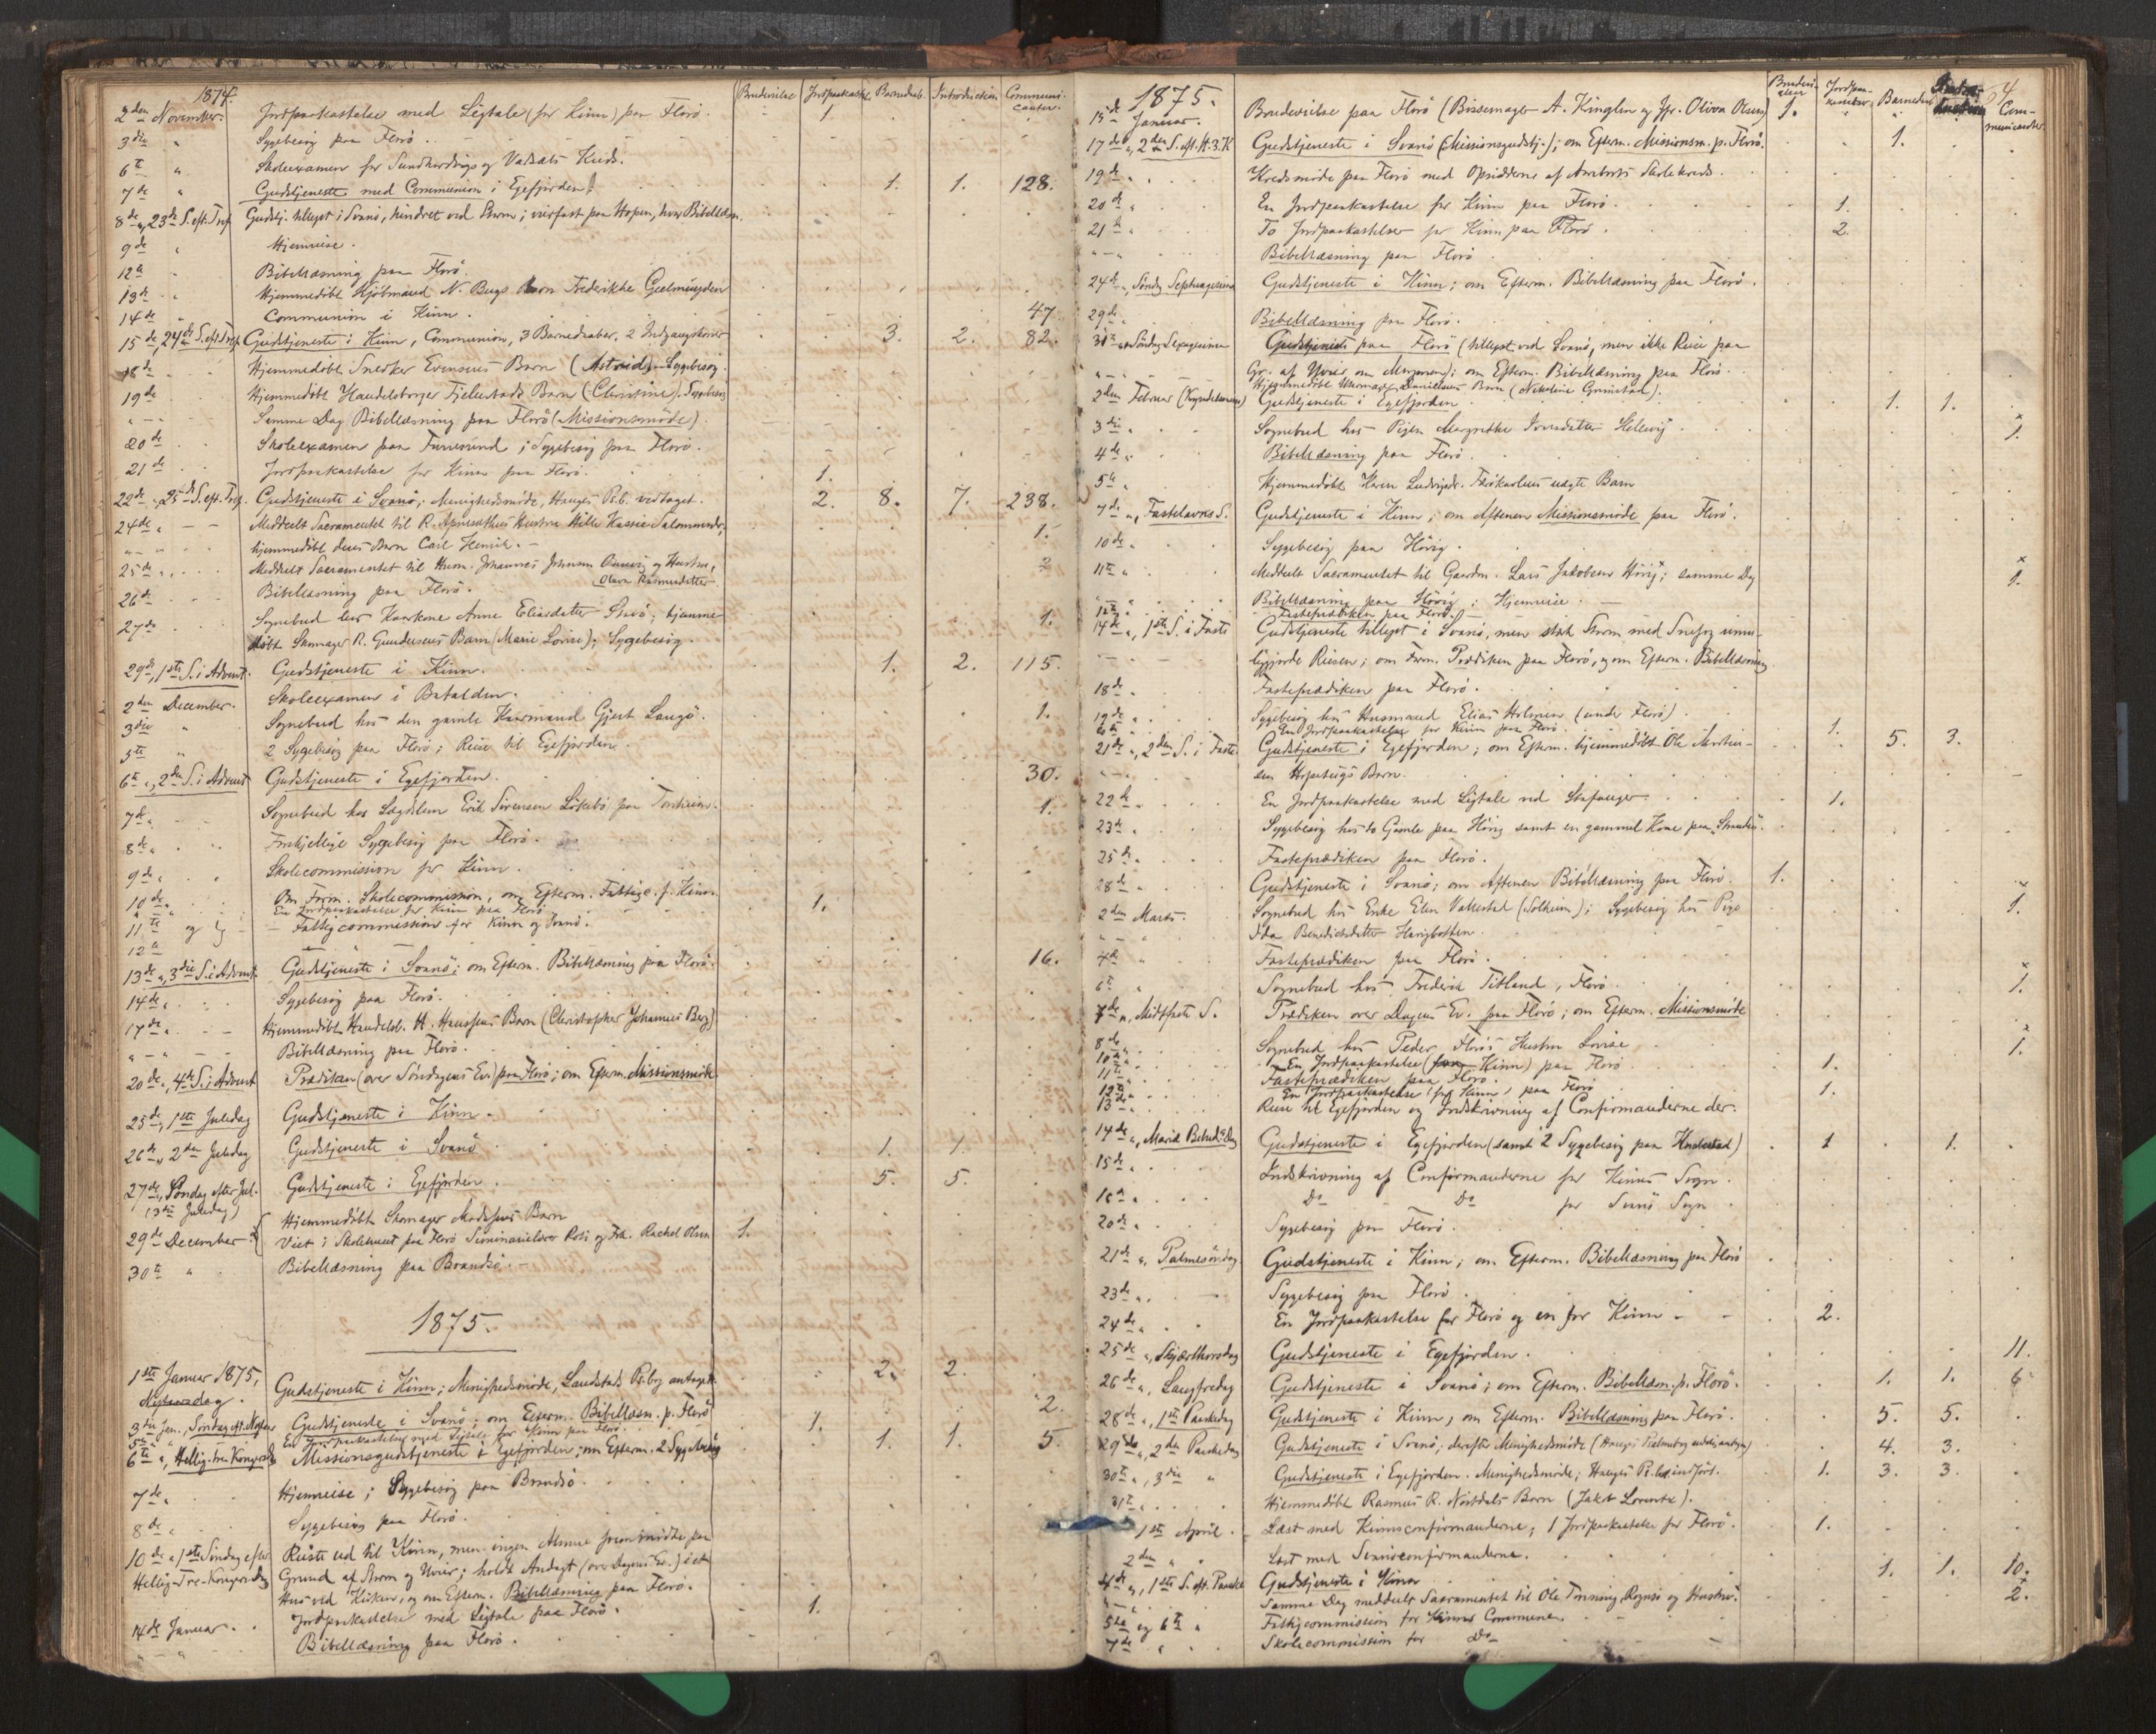 1874. Brudevielse Jordpaakastel. Barnedaab. Introduction Communicanter.
2den November. Jordpaakastelse med Ligtale (for Kinn) paa Florö. 1
3die " Sygebesög paa Florö.
6te " Skoleexamen for Sundhordvigs og Vadsæts Kreds.
7de " Gudstjeneste med Communion i Egefjorden 1. 1. 128.
8de ", 23de S. eft. Tref. Gudstj. tillyst i Svanö, hindret ved Storm; veirfast paa Hopen, hvor Bibellæsn.
9de " Hjemreise.
12te " Bibellæsning paa Florö.
13de " Hjemmedöbt Kjöbmand N. Bugs Barn Frederikke Geelmuyden
14de " Communion i Kinn. 47
15de, 24de S. eft. Tref. Gudstjeneste i Kinn, Communion, 3 Barnedaaber, 2 Indgangskoner 3. 2. 82.
18de Hjemmedöbt Snedker Evensens Barn (Astrid) – Sygebesög.
19de Hjemmedöbt Handelsborger Fjelestads Barn (Christine). Sygebesög
" – " Samme Dag Bibellæsning paa Florö (Missionsmöde)
20de Skoleexamen paa Furesund; Sygebesög paa Florö.
21de Jordpaakastelse for Kinn paa Florö. 1.
22de ", 25de S. eft. Tref. Gudstjeneste i Svanö; Menighedsmöde, Hauges Ps.b. vedtaget. 2. 8. 7. 238.
24de " Meddelt Sacramentet til R. Hustru Hille Kassie Salomonsdr, 1.
" – " hjemmedöbt deres Barn Carl Henrik. –
25de " Meddelt Sacramentet til Husm. Johannes Johnsen og Hustru, 2
Olava Rasmusdatter
26de Bibellæsning paa Florö.
27de Sognebud hos Kaarkone Anne Eliasdatter ; hjemme- 1.
döbt Skomager R. Gundersens Barn (Marie Lovise); Sygebesög.
29de, 1ste S. i Advent. Gudstjeneste i Kinn. 1. 2. 115.
2den December. Skoleexamen i Batalden.
3die " Sognebud hos den gamle Kaarmand Gjert Langö. 1.
5te " 2 Sygebesög paa Florö; Reise til Egefjorden.
6te ", 2den S. i Advent Gudstjeneste i Egefjorden. 30.
7de " Sognebud hos Lægdslem Erik Sörensen paa Tonheim. 1.
8de " Forskjellige Sygebesög paa Florö.
9de " Skolecommission for Kinn.
10de " Om Form. Skolecommission, om Efterm. Fattigc. f. Kinn.
" – " En Jordpaakastelse for Kinn paa Florö 1.
11te og – Fattigcommission for Kinn og Svanö.
12te
13de ", 3die S. i Advent. Gudstjeneste i Svanö; om Efterm. Bibellæsning paa Florö. 16.
14de " Sygebesög paa Florö.
17de " Hjemmedöbt Handelsb. H. Hanssens Barn (Christopher Johannes Berg)
" – " Bibellæsning paa Florö.
20de ", 4de S. i Advent Prædiken (over Söndagens Ev.) paa Florö; om Efterm. Missionsmöde
25de, 1ste Juledag Gudstjeneste i Kinn.
26de ", 2den Juledag Gudstjeneste i Svanö 1. 1.
27de ", Söndag efter Jul. Gudstjeneste i Egefjorden. 5. 5.
(3die Juledag)
Hjemmedöbt Skomager Madssens Barn
29de December Viet i Skolehuset paa Florö Seminarielærer og Frk. Rachel Olsen 1.
30te " Bibellæsning paa Brandsö. –
1875.
1ste Januar 1875, Gudstjeneste i Kinn; Menighedsmöde, Landstads Ps.bog antaget. 2. 2.
Nytaarsdag.
3die Jan., Söndag eft. Nytaar Gudstjeneste i Svanö; om Efterm. Bibellæsn. p. Florö 2.
5te " En Jordpaakastelse med Ligtale for Kinn paa Florö. 1.
6te ", Hellig-tre-Kongersdg Missionsgudstjeneste i Egefjorden; om Efterm. 2 Sygebesög 1. 1. 5.
7de " Hjemreise; Sygebesög paa Brandsö.
8de " Sygebesög paa Florö.
10de ", 1ste Söndag efter Reiste ud til Kinn, men ingen Almue fremmödte paa
Hellig-Tre-Kongersdag Grund af Storm og Uveir; holdt Andagt (over Dagens Ev.) i et
Hus ved Kirken, og om Efterm. Bibellæsning paa Florö.
14de Januar. Jordpaakastelse med Ligtale paa Florö. 1.
" – " Bibellæsning paa Florö.
1875. Brudevielser Jordpaakastelser Barnedaab Communicanter. 64
15de Januar. Brudevielse paa Florö (Bissemager A. Kinglen og Jfr. Oliva Olsen) 1.
17de ", 2den S. eft. H. 3. K Gudstjeneste i Svanö (Missionsgudstj.); om Efterm. Missionsm. p. Florö. 1.
19de " Kredsmöde paa Florö med Opsidderne af Skolekreds.
20de " En Jordpaakastelse for Kinn paa Florö. 1.
21de " To Jordpaakastelser for Kinn paa Florö. 2.
" – " Bibellæsning paa Florö
24de ", Söndg Septuagesima Gudstjeneste i Kinn; om Efterm. Bibellæsning paa Florö.
29de " Bibellæsning paa Florö.
31te " Söndag Sexagesima Gudstjeneste paa Florö (tillyst ved Svanö, men ikke Reise paa
Gr. af Uveir om Morgenen); om Efterm. Bibellæsning paa Florö.
Hjemmedöbt Uhrmager Danielsens Barn (Nikoline Grimstad).
2den Februar (Kyndelsmesse) Gudstjeneste i Egefjorden 1. 1.
3die " Sognebud hos Pigen Margrethe Iversdatter Hellevig. 1.
4de " Bibellæsning paa Florö.
5te " Hjemmedöbt Karen Ludvigsdr. uægte Barn
7de ", Fastelavns S. Gudstjeneste i Kinn; om Aftenen Missionsmöde paa Florö.
10de " Sygebesög paa Hövig.
11te " Meddelt Sacramentet til Gaardm. Lars Jakobsen Hövig; samme Dag 1.
" – " Bibellæsning paa Hövig; Hjemreise.
12te " Fasteprædiken paa Florö.
14de ", 1ste S. i Faste Gudstjeneste tillyst i Svanö, men stærk Storm med Snefog umu-
liggjorde Reisen; om Form. Prædiken paa Florö, og om Efterm. Bibellæsning
18de " Fasteprædiken paa Florö.
19de " Sygebesög hos Husmand Elias Holmen (under Florö)
20de " En Jordpaakastelse for Kinn paa Florö 1.
21de ", 2den S. i Faste Gudstjeneste i Egefjorden; om Efterm. hjemmedöbt Ole 5. 3.
" – " sen Barn.
22de " En Jordpaakastelse med Ligtale ved Stafanger. 1.
23de " Sygebesög hos to Gamle paa Hövig samt en gammel Kone paa
25de " Fasteprædiken paa Florö.
28de " Gudstjeneste i Svanö; om Aftenen Bibellæsning paa Florö. 1.
2den Marts. Sognebud hos Enke Elen Vallestad (Solheim); Sygebesög hos Pige 1.
" – " Ida Benedictsdatter
4de " Fasteprædiken paa Florö.
6te " Sognebud hos Frederik Titland, Florö. 1.
7de ", Midtfaste S. Prædiken over Dagens Ev. paa Florö; om Efterm. Missionsmöde
8de " Sognebud hos Peder Florös Hustru Lovise 1.
10de " En Jordpaakastelse ( Kinn) paa Florö 1.
11te " Fasteprædiken paa Florö.
12te " En Jordpaakastelse (for Kinn) paa Florö 1.
13de " Reise til Egefjorden og Indskrivning af Confirmanderne der.
14de ", Mariæ Bebud. Dag Gudstjeneste i Egefjorden (samt 2 Sygebesög paa ) 1 1.
15de " Indskrivning af Confirmanderne for Kinns Sogn.
16de " Do Do for Svanö Sogn.
20de " Sygebesög paa Florö.
21de ", Palmesöndag Gudstjeneste i Kinn; om Efterm. Bibellæsning paa Florö
23de " Sygebesög paa Florö.
24de " En Jordpaakastelse for Florö og en for Kinn – 2.
25de ", Skjærthorsdag Gudstjeneste i Egefjorden. 11.
26de ", Langfredag Gudstjeneste i Svanö; om Efterm. Bibellæsn. p. Florö. 1. 1. 6
28de ", 1ste Paaskedag Gudstjeneste i Kinn; om Efterm. Bibellæsning paa Florö. 5. 5.
29de ", 2den Paaskedag Gudstjeneste i Svanö; derefter Menighedsmöde (Hauges Psalmebog ) 4. 3.
30te ", 3die " Gudstjeneste i Egefjorden. Menighedsmöde; Hauges Ps.b. indfört. 1. 3. 3.
31te " Hjemmedöbt Rasmus R. Nordals Barn (Jakob Lorentz).
1ste April. Læst med Kinnsconfirmanderne; 1 Jordpaakastelse for Florö. 1.
2den " Læst med Svanöconfirmanderne.
4de ", 1ste S. eft. Paaske Gudstjeneste i Kinn 1. 1. 10.
" – " Samme Dag meddeelt Sacramentet til Ole Tonning, Rognsö og Hustru. 2.
5te og 6te " Fattigcommission for Kinns Commune.
7de " Skolecommission for Do